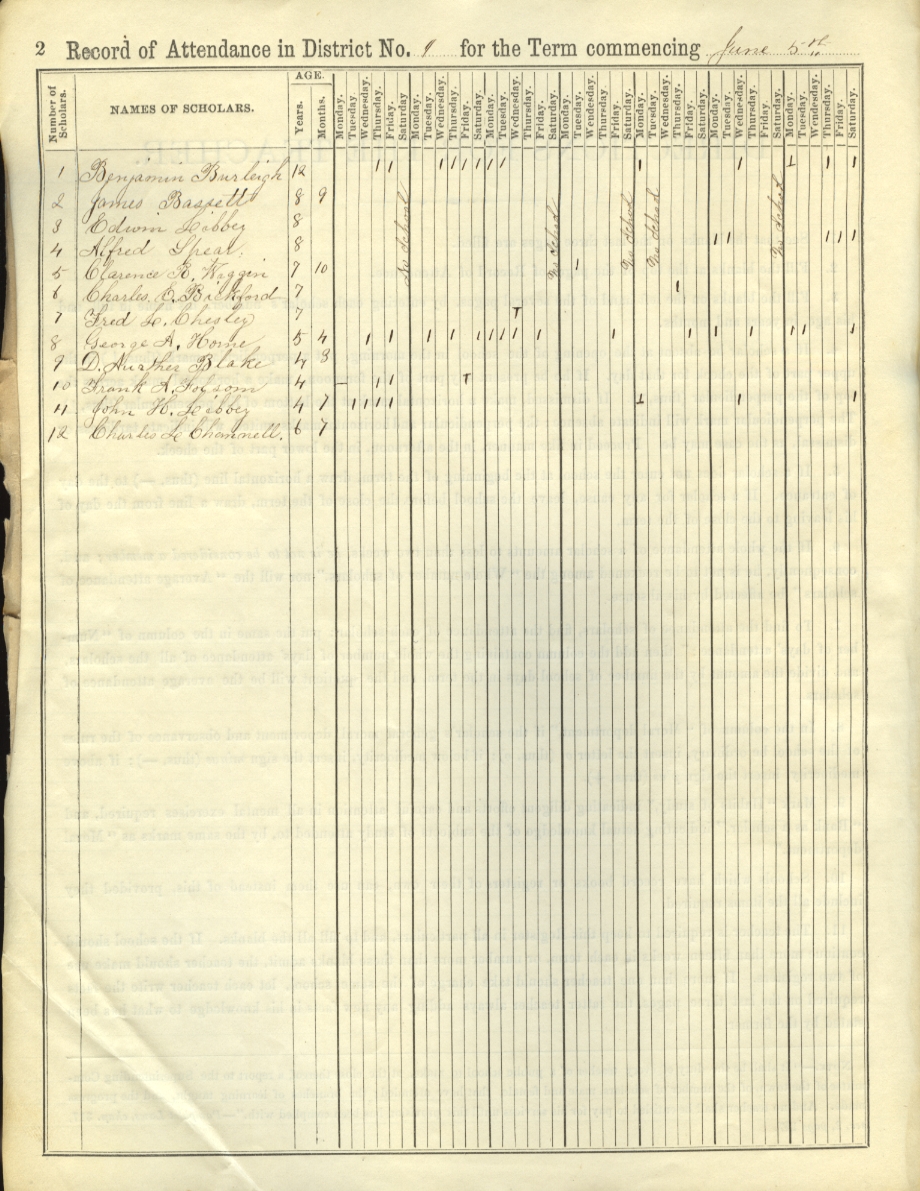 2 Record of Attendance in District No. 9 for the Term commencing June 5th
Number of Scholars. NAMES OF SCHOLARS. AGE. Years. Months. Monday. Tuesday. Wednesday. Thursday. Friday. Saturday. Monday. Tuesday. Wednesday. Thursday. Friday. Saturday. Monday. Tuesday. Wednesday. Thursday. Friday. Saturday. Monday. Tuesday. Wednesday. Thursday. Friday. Saturday. Monday. Tuesday. Wednesday. Thursday. Friday. Saturday. Monday. Tuesday. Wednesday. Thursday. Friday. Saturday. Monday. Tuesday. Wednesday. Thursday. Friday. Saturday.
1 Benjamin Burleigh 12
2 James Bassett 8 9
3 Edwin Libbey 8
4 Alfred Spear. 8
5 Clarence R. Waggin 7 10
6 Charles E. Bickford 7
7 Fred L. Chesley 7
8 George A. Horne 5 4
9 D. Aurther Blake 4 3
10 Frank A. Folsom 4
11 John H. Libbey 4 7
12 Charles L Channell. 6 7
No School
No School
No School
No School
No School